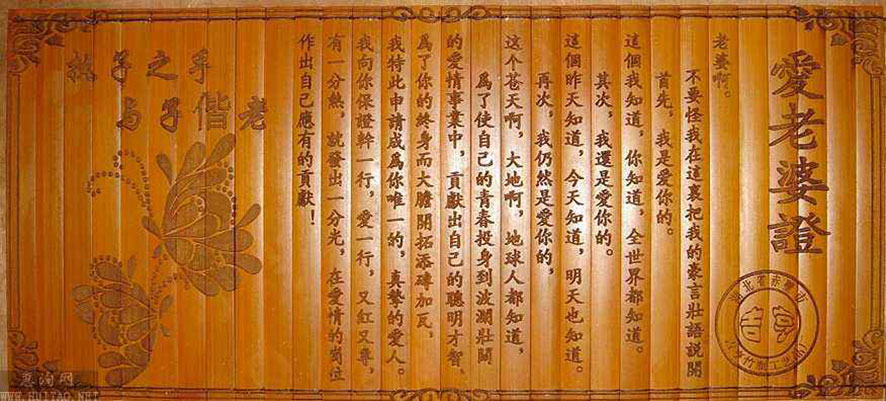 愛老婆證
老婆啊。
不要怪我在這裏把我的豪言壯語説開
首先，我是愛你的。
這個我知道，你知道，全世界都知道。
其次，我還是愛你的。
這個昨天知道，今天知道，明天也知道。
再次，我仍然是愛你的，
这个苍天啊，大地啊，地球人都知道，
爲了使自己的青春投身到波瀾壯闊
的愛情事業中，貢獻出自己的聰明才智、
爲了你的終身而大膽開拓添磚加瓦，
我特此申請成爲你唯一的，真摯的愛人。
我向你保證幹一行，愛一行，又紅又專，
有一分熱，就發出一分光，在愛情的崗位
作出自己應有的貢獻！
执子之手
与子偕老
湖北省赤壁市
惠淘网
WWW.HUITAO.NET